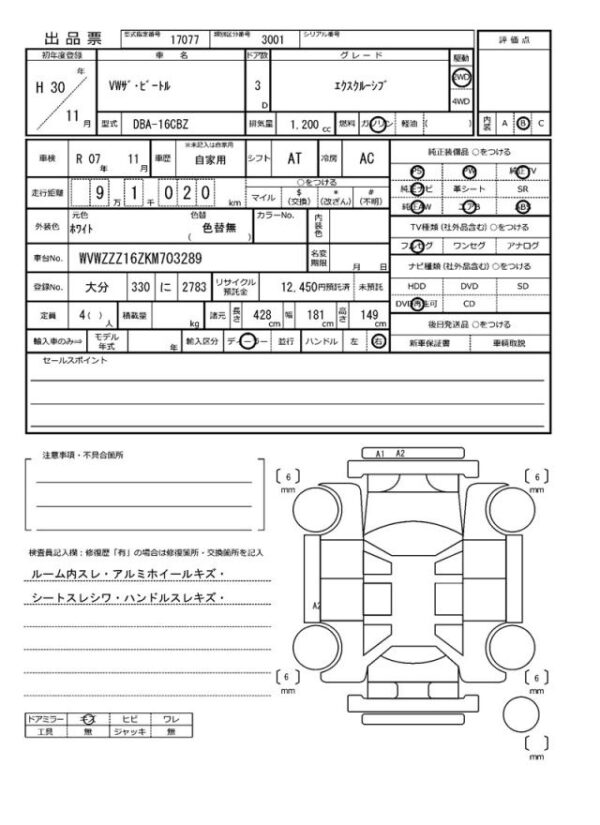 出品票 型式指定番号 17077 類別区分番号 3001 シリアル番号
評価点
初年度登録 車名 ドア数 グレード 駆動
H 30 年 11 月 VWザ・ビートル 3 D エクスクルーシブ 2WD
4WD
型式 DBA-16CBZ 排気量 1,200 cc 燃料 ガソリン 軽油 ( ) 内装 A B C
車検 R 07 年 11 月 車歴 ※未記入は自家用 自家用 シフト AT 冷房 AC
純正装備品 ○をつける
PS PW 純正TV
純正ナビ 革シート SR
純正AW エアB ABS
走行距離 9 万 1 千 0 2 0 km
○をつける
マイル $ (交換) * (改ざん) # (不明)
TV種類 (社外品含む) ○をつける
フルセグ ワンセグ アナログ
外装色 元色 ホワイト 色替 ( 色替無 ) カラーNo. 内装色
車台No. WVWZZZ16ZKM703289 名変期限 月 日
ナビ種類 (社外品含む) ○をつける
HDD DVD SD
DVD再生可 CD
登録No. 大分 330 に 2783 リサイクル預託金 12,450円預託済 未預託
定員 4( )人 積載量 kg 諸元 長さ 428 cm 幅 181 cm 高さ 149 cm
後日発送品 ○をつける
新車保証書 車輌取説
輸入車のみ⇒ モデル年式 年 輸入区分 ディーラー 並行 ハンドル 左 右
セールスポイント
注意事項・不具合箇所
検査員記入欄:修復歴「有」の場合は修復箇所・交換箇所を記入
ルーム内スレ・アルミホイールキズ・
シートスレシワ・ハンドルスレキズ・
ドアミラー キズ ヒビ ワレ
工具 無 ジャッキ 無
A1 A2
( 6 ) mm
( 6 ) mm
A2
( 6 ) mm
( 6 ) mm
( ) mm